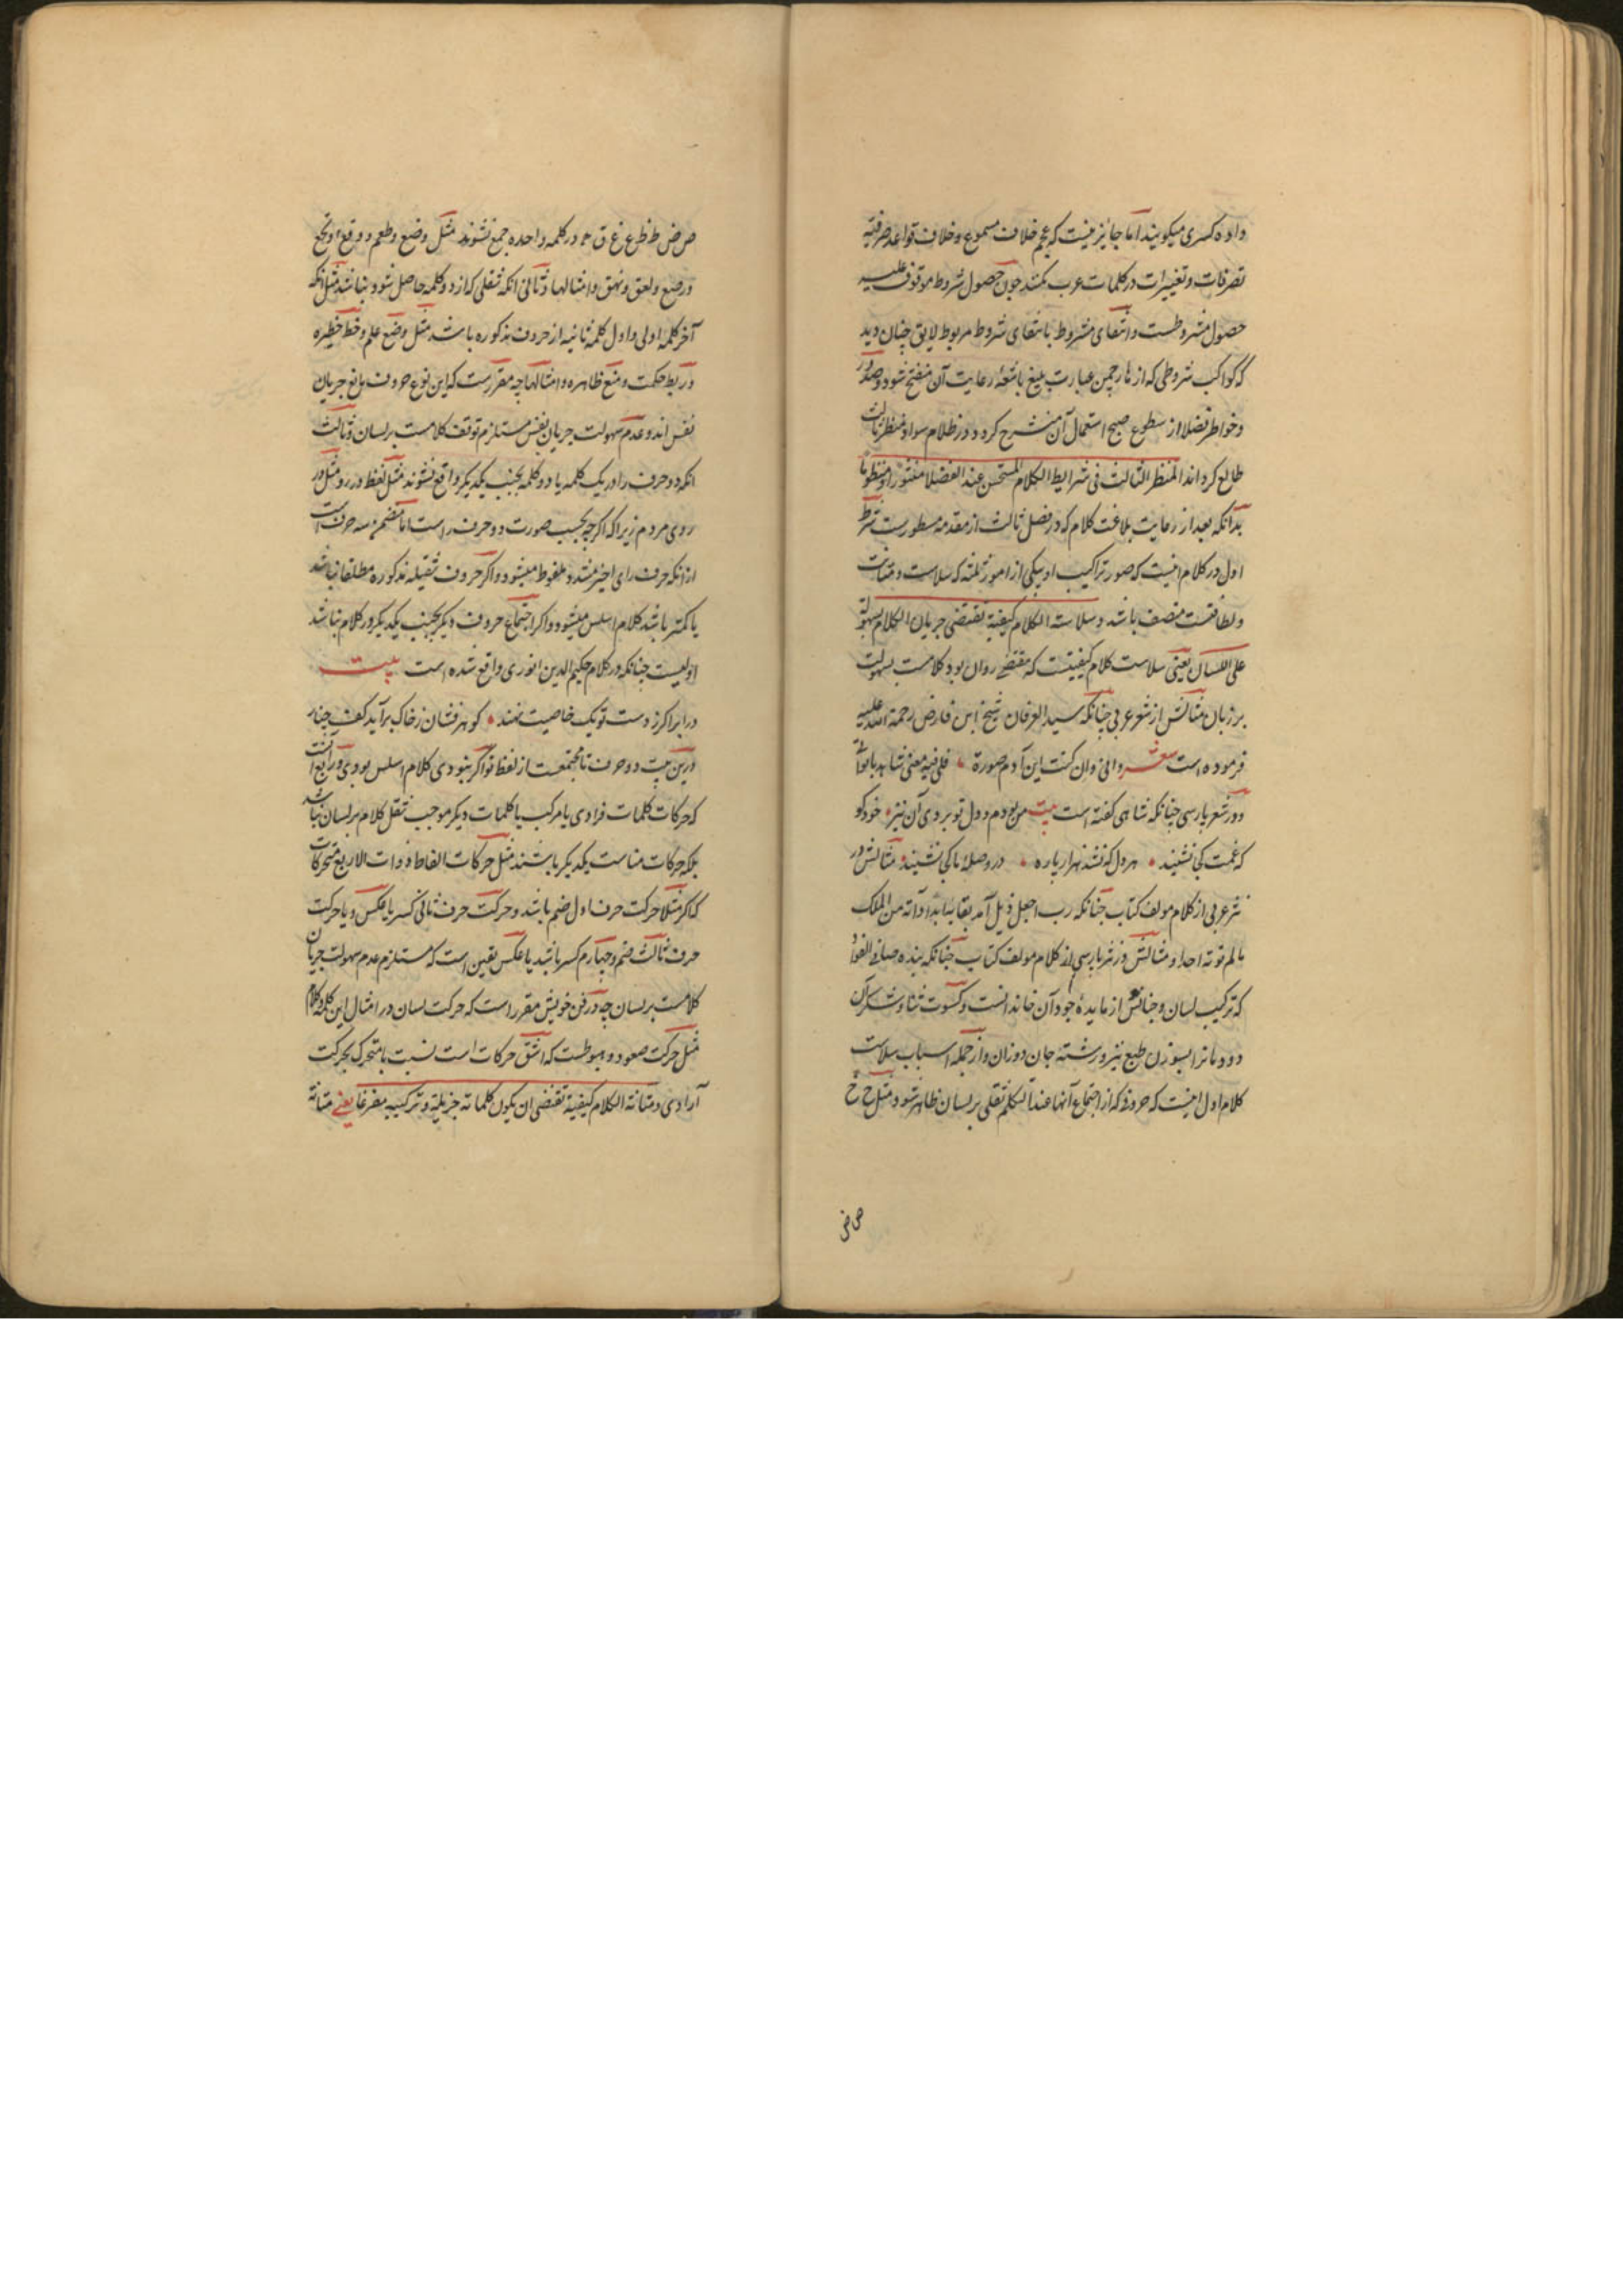 داوه کسری میکویند اما جایز نیست که عجم خلاف مسموع و خلاف قواعد صرفیه
تصرفات و تغییرات در کلمات عرب کنند چون حصول شروط موقوف علیه
حصول مشروطست و انتفای مشروط بانتفای شروط مربوط لایق چنان دید
که کواکب شروطی که از عبارت بلیغ باشعهٔ رعایت آن منضح شود و صدور
و خواطر فضلا از سطوع صبح استعمال آن منشرح کردد در ظلام سواد منظر ثالث
طالع کرداند المنظر الثالث فی شرایط الکلام المستحسن عند الفضلا منثورا و منظوما
بدانکه بعد از رعایت بلاغت کلام که در فصل ثالث از مقدمه مسطورست شرط
اول در کلام اینست که صور تراکیب او بیکی از امور ثلثه که سلاست و متانت
و لطافتست متصف باشد و سلاسة الکلام کیفیة تقتضی جریان الکلام بسهولة
علی اللسان یعنی سلاست کلام کیفیتست که مقتضی روان بود کلامست بسهولت
بر زبان مثالش از شعر عربی چنانکه سید العرفان شیخ ابن فارض رحمة الله علیه
فرموده است شعر وانی وان کنت ابن آدم صورة فلی فیه معنی شاهد بابوتی
و در شعر پارسی چنانکه شاهی کفته است بیت من بودم و دل تو بردی آن نیز خود کو
که غمت کی نشیند هر دل که نشد هزار پاره در وصله ما کی نشیند مثالش در
نثر عربی از کلام مولف کتاب چنانکه رب اجعل ذیل آمد بقایه ابدا و آته من الملک
ما لم تؤته احدا و مثالش در نثر پارسی از کلام مولف کتاب چنانکه بنده صافی الفؤاد
که ترکیب لسان و جنانش از مایدهٔ جود آن خاندانست و کسوت ثنا و شکر آن
دودمان را بسوزن طبع تیز و رشتهٔ جان دوزان و از جمله اسباب سلاست
کلام اول اینست که حروفی که از اجتماع آنها عند التکلم ثقلی بر لسان ظاهر شود مثل ح خ
ص ض
ص ض ط ظ ع غ ق ه در کلمه واحده جمع نشوند مثل وضع و طعم و وقع و نخع
و رضع و لعق و نهق و امثالها و ثانی آنکه ثقلی که از دو کلمه حاصل شود نباشد مثل آنکه
آخر کلمه اولی و اول کلمه ثانیه از حروف مذکوره باشد مثل وضع علم و خط خطیره
و ربط حکمت و منع ظاهره و امثالها چه مقررست که این نوع حروف مانع جریان
نفس اند و عدم سهولت جریان نفس مستلزم توقف کلامست بر لسان و ثالث
آنکه دو حرف را در یک کلمه یا دو کلمه بجنب یکدیکر واقع نشوند مثل لفظ در رو مثل در
روی مردم زیرا که اکرچه بحسب صورت دو حرف راست اما متضمن سه حرف است
از آنکه حرف رای اخیر مشدد ملفوظ میشود و اکر حروف ثقیله مذکوره مطلقا نباشد
یا کمتر باشد کلام اسلس میشود و اکر اجتماع حروف دیکر بجنب یکدیکر در کلام نباشد
اولیست چنانکه در کلام حکیم الدین انوری واقع شده است بیت
در ابر اکر ز دست تو یک خاصیت نهند کوهر فشان ز خاک برآید کف چنار
درین بیت دو حرف تا مجتمعست از لفظ تو اکر نبودی کلام اسلس بودی و رابع آنست
که حرکات کلمات فرادی یا مرکب با کلمات دیکر موجب ثقل کلام بر لسان نباشد
بلکه حرکات مناسب یکدیکر باشند مثل حرکات الفاظ ذوات الاربع متحرکات
که اکر مثلا حرکت حرف اول ضم باشد و حرکت حرف ثانی کسر یا عکس و یا حرکت
حرف ثالث ضم و چهارم کسر باشد یا عکس یقین است که مستلزم عدم سهولت جریان
کلامست بر لسان چه در فن خویش مقرر است که حرکت لسان در امثال این کلمه و کلام
مثل حرکت صعود و هبوطست که اشق حرکات است نسبت با متحرک بحرکت
آرادی و متانة الکلام کیفیة تقتضی ان یکون کلماته جزیلة و ترکیبه مفرغا یعنی متانة